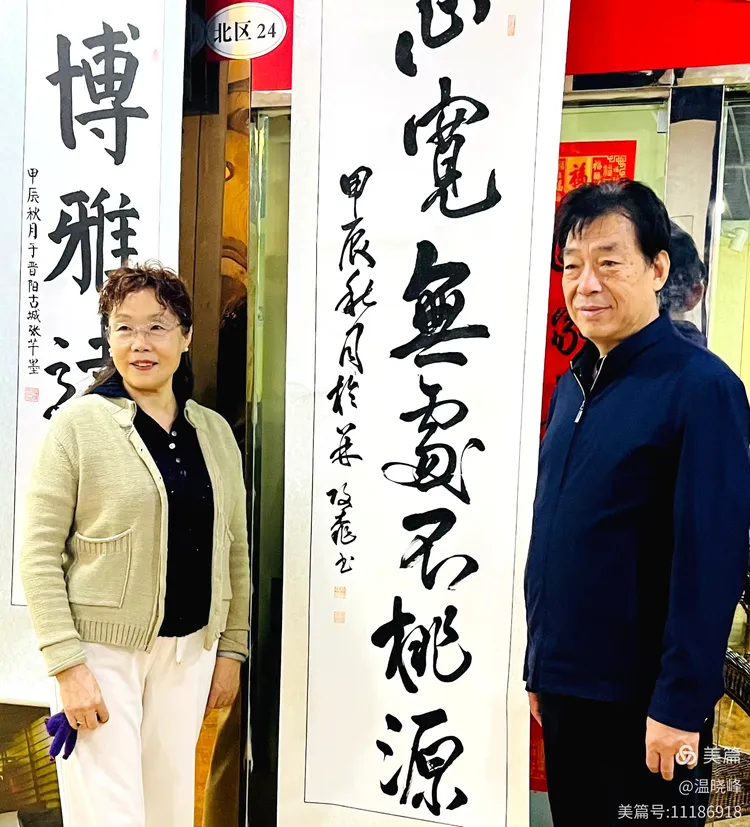 北区24
博雅
甲辰秋月于晋阳古城张芊墨
心寬無處不桃源
甲辰秋月於
福
美篇
@温晓峰
美篇号:11186918